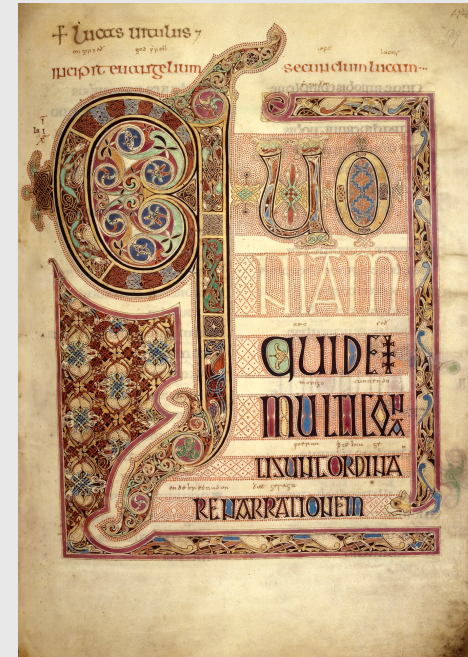 + Lucas uitulus
incipit euangelium secundum lucam
QUO
NIAM
QUIDEM
MULTICONA
TISUNTORDINA
RENARRATIONEM